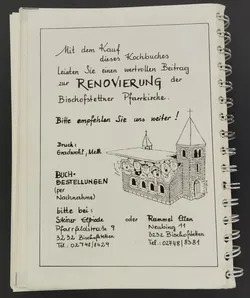 Mit dem Kauf
dieses Kochbuches
leisten Sie einen wertvollen Beitrag
zur RENOVIERUNG der
Bischofstettner Pfarrkirche.
Bitte empfehlen Sie uns weiter!
Druck:
Gradwohl, Melk
BUCH-
BESTELLUNGEN
(per
Nachnahme)
bitte bei:
Steiner Elfriede
Pfarrfeldstraße 9
3232 Bischofstetten
Tel.: 02748/8529
oder
Rammel Ellen
Neubing 11
3232 Bischofstetten
Tel.: 02748/8381